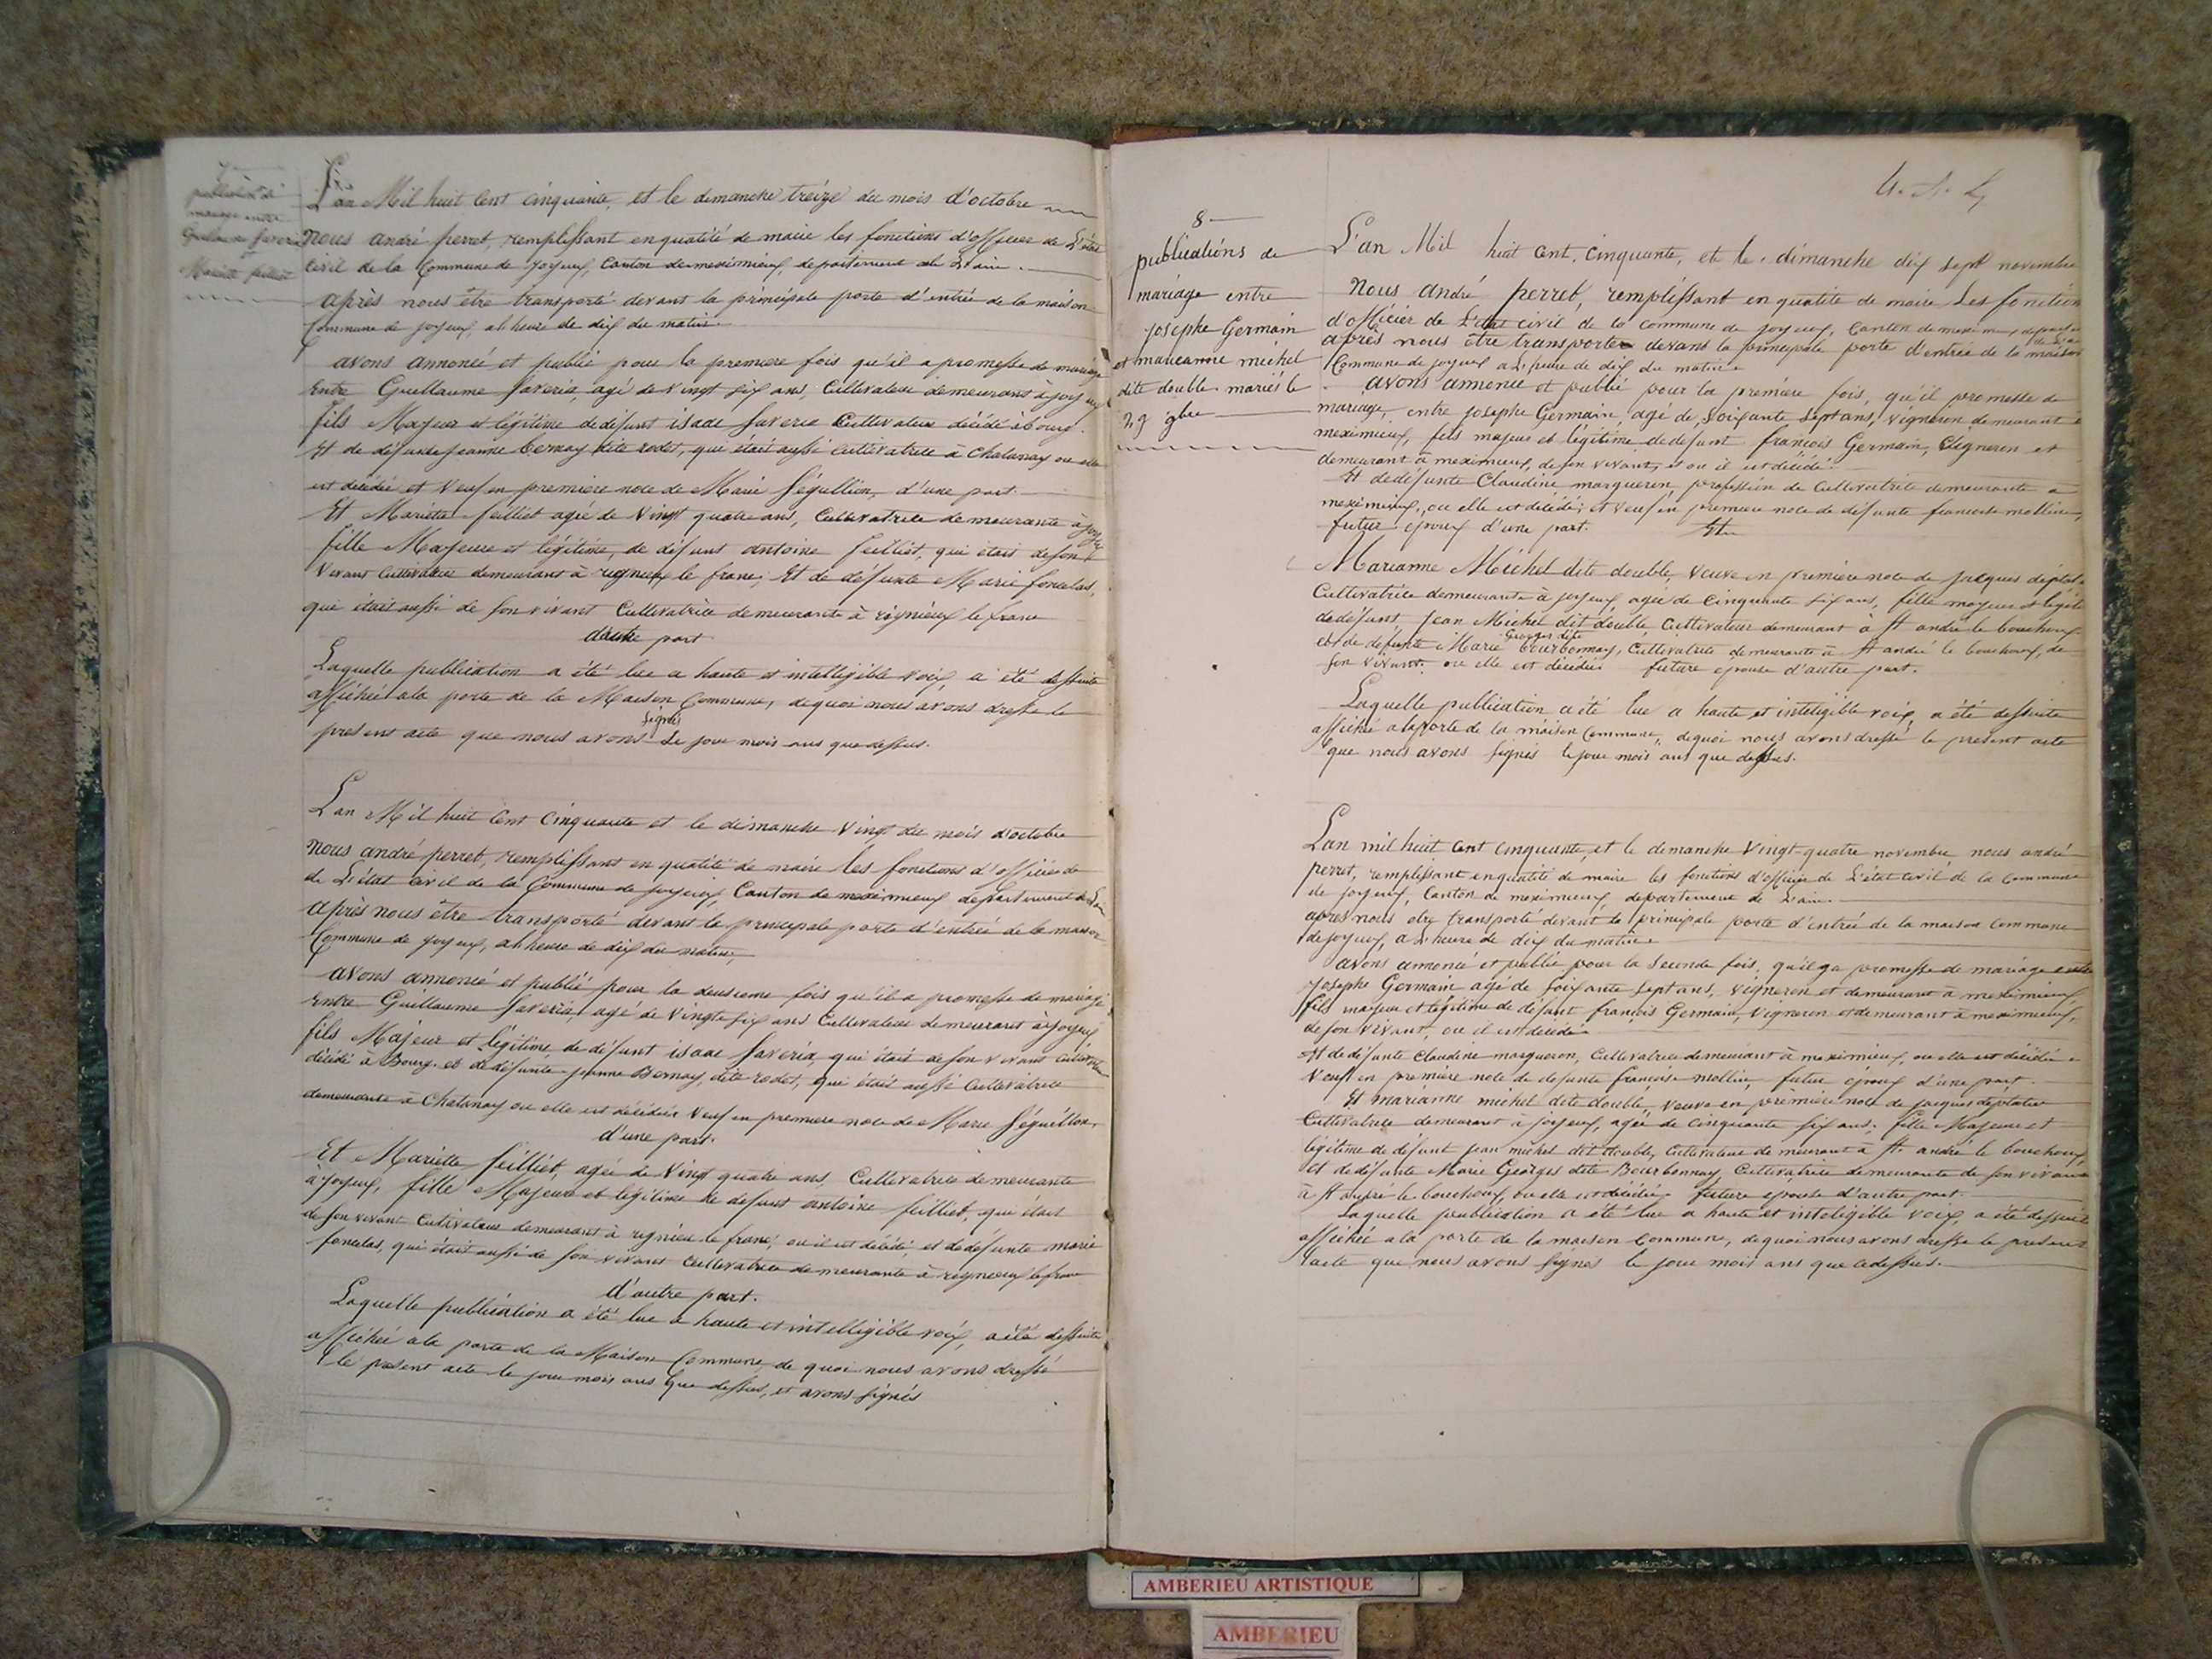 7
publication de
mariage entre
Guillaume Saveria
et
Mariette feilliet
L'an Mil huit Cent cinquante, et le dimanche treize du mois d'octobre
nous andré perret, remplissant en quatité de maire les fonctions d'officier de L'état
civil de la Commune de joyeux, Canton de meximieux, departement de L'ain.
après nous être transporté devant la principale porte d'entrée de la maison
Commune de joyeux, a L heure de dix du matin.
avons annoncé et publié pour la première fois qu'il a promesse de mariage
Entre Guillaume Saveria, agé de vingt six ans, Cultivateur demeurant à joyeux
fils Majeur et légitime de défunt isaac Saveria Cultivateur décédé à bourg.
Et de défunte jeanne Bernay dite rodet, qui étais aussi Cultivatrice à Chatanay ou elle
est décédée et Veuf en premiere noce de Marie Séguillon, d'une part.
Et Mariette feilliet agée de Vingt quatre ans, Cultivatrice demeurante à joyeux
fille Majeure et légitime, de défunt antoine feilliet, qui étais de son
Vivant Cultivateur demeurant à rignieux le franc, Et de défunte Marie foncelas,
qui étais aussi de son vivant Cultivatrice demeurante à rignieux le franc
d'autre part
Laquelle publication a été lue a haute et intelligible voix, a été dessuite
affichée a la porte de la Maison Commune, de quoi nous avons dressé le
présent acte que nous avons signés Le jour mois ans que dessus.
L'an Mil huit Cent Cinquante et le dimanche Vingt du mois d'octobre
Nous andré perret, remplissant en quatité de maire les fonctions d'officier de
de L'état civil de la Commune de joyeux, Canton de meximieux departement de L'ain
Après nous être transporté devant la principale porte d'entrée de la maison
Commune de joyeux, a L heure de dix du matin,
avons annoncé et publié pour la deuxieme fois qu'il a promesse de mariage
Entre Guillaume Saveria, agé de Vingt six ans Cultivateur demeurant à joyeux
fils Majeur et légitime de défunt isaac Saveria, qui étais de son vivant Cultivateur
décédé à Bourg. et de défunte jeanne Bernay, dite rodet, qui étais aussi Cultivatrice
demeurante à Chatanay ou elle est décédée Veuf en premiere noce de Marie Séguillon,
d'une part.
Et Mariette feilliet, agée de Vingt quatre ans, Cultivatrice demeurante
à joyeux, fille Majeure et légitime de défunt antoine feilliet, qui étais
de son vivant Cultivateur demeurant à rignieu le franc, ou il est décédé, et de défunte marie
foncelas, qui étais aussi de son vivant Cultivatrice demeurante à rignieux le franc
d'autre part.
Laquelle publication a été lue a haute et intelligible voix, a été dessuite
affichée a la porte de la Maison Commune, de quoi nous avons dressé
le présent acte le jour mois ans que dessus, et avons signés
8
publications de
mariage entre
josephe Germain
et marianne michel
dite double mariés le
29 9bre
L'an Mil huit Cent, Cinquante, et le dimanche dix sept novembre
Nous andré perret, remplissant en quatité de maire Les fonction
d'officier de L'état civil de la commune de joyeux, Canton de meximieux, departement de L'ain
après nous être transporté devans la principale porte d'entrée de la maison
Commune de joyeux a L heure de dix du matin
avons annoncé et publié pour la première fois, qu'il promesse de
mariage, entre josephe Germain, agé de, soixante sept ans, vigneron demeurant à
meximieux, fils majeur et légitime de défunt françois Germain, Vigneron et
demeurant à meximieux, de son vivant, et ou il est décédé.
Et de défunte Claudine marqueron, profession de Cultivatrice demeurante a
meximieux, ou elle est décédée; et Veuf en premiere noce de défunte francoise mollin,
futur époux d'une part. Et
Marianne Michel dite double, veuve en première noce de jacques
Cultivatrice demeurante à joyeux, agée de Cinquante six ans, fille majeur et légit
de défunt, Jean Michel dit double, Cultivateur demeurant à St andré le bouchoux
et de défunte Marie Georges dite bourbonnay, Cultivatrice demeurante à St andré le bouchoux, de
son vivant. ou elle est décédée. future épouse d'autre part.
Laquelle publication a été lue a haute et inteligible voix, a été dessuite
affiché a la porte de la maison Commune, de quoi nous avons dressé le présent acte
que nous avons signés le jour mois ans que dessus.
L'an mil huit Cent cinquante, et le dimanche Vingt-quatre novembre, nous andré
perret, remplissant en quatité de maire les fonctions d'officier de L'état civil de la Commune
de joyeux, Canton de meximieux, departement de L'ain.
apres nous etre transporté devant la principale porte d'entrée de la maison Commune
de joyeux, a L heure de dix du matin
avons annoncé et publié pour la seconde fois, qu'il ya promesse de mariage entre
josephe Germain agé de soixante sept ans, vigneron et demeurant à meximieux
fils majeur et légitime de défunt françois Germain, Vigneron et demeurant à meximieux,
de son vivant, ou il est décédé
Et de défunte Claudine marqueron, Cultivatrice demeurant à meximieux, ou elle est décédée
Veuf en première noce de defunte françoise mollin, futur époux d'une part.
Et marianne michel dite double, veuve en première noce de jacques
Cultivatrice demeurant à joyeux, agée de cinquante six ans, fille Majeure et
légitime de défunt jean michel dit double, Cultivateur demeurant à St. andré le bouchoux,
et de défunte Marie Georges dite Bourbonnay, Cultivatrice demeurante de son vivant
à St andré le bouchoux, ou elle est décédée. future épouse d'autre part.
Laquelle publication a été lue a haute et inteligible voix, a été dessuite
affichée a la porte de la maison Commune, de quoi nous avons dressé le présent
acte que nous avons signés le jour mois ans que ce dessus.
AMBERIEU ARTISTIQUE
AMBERIEU